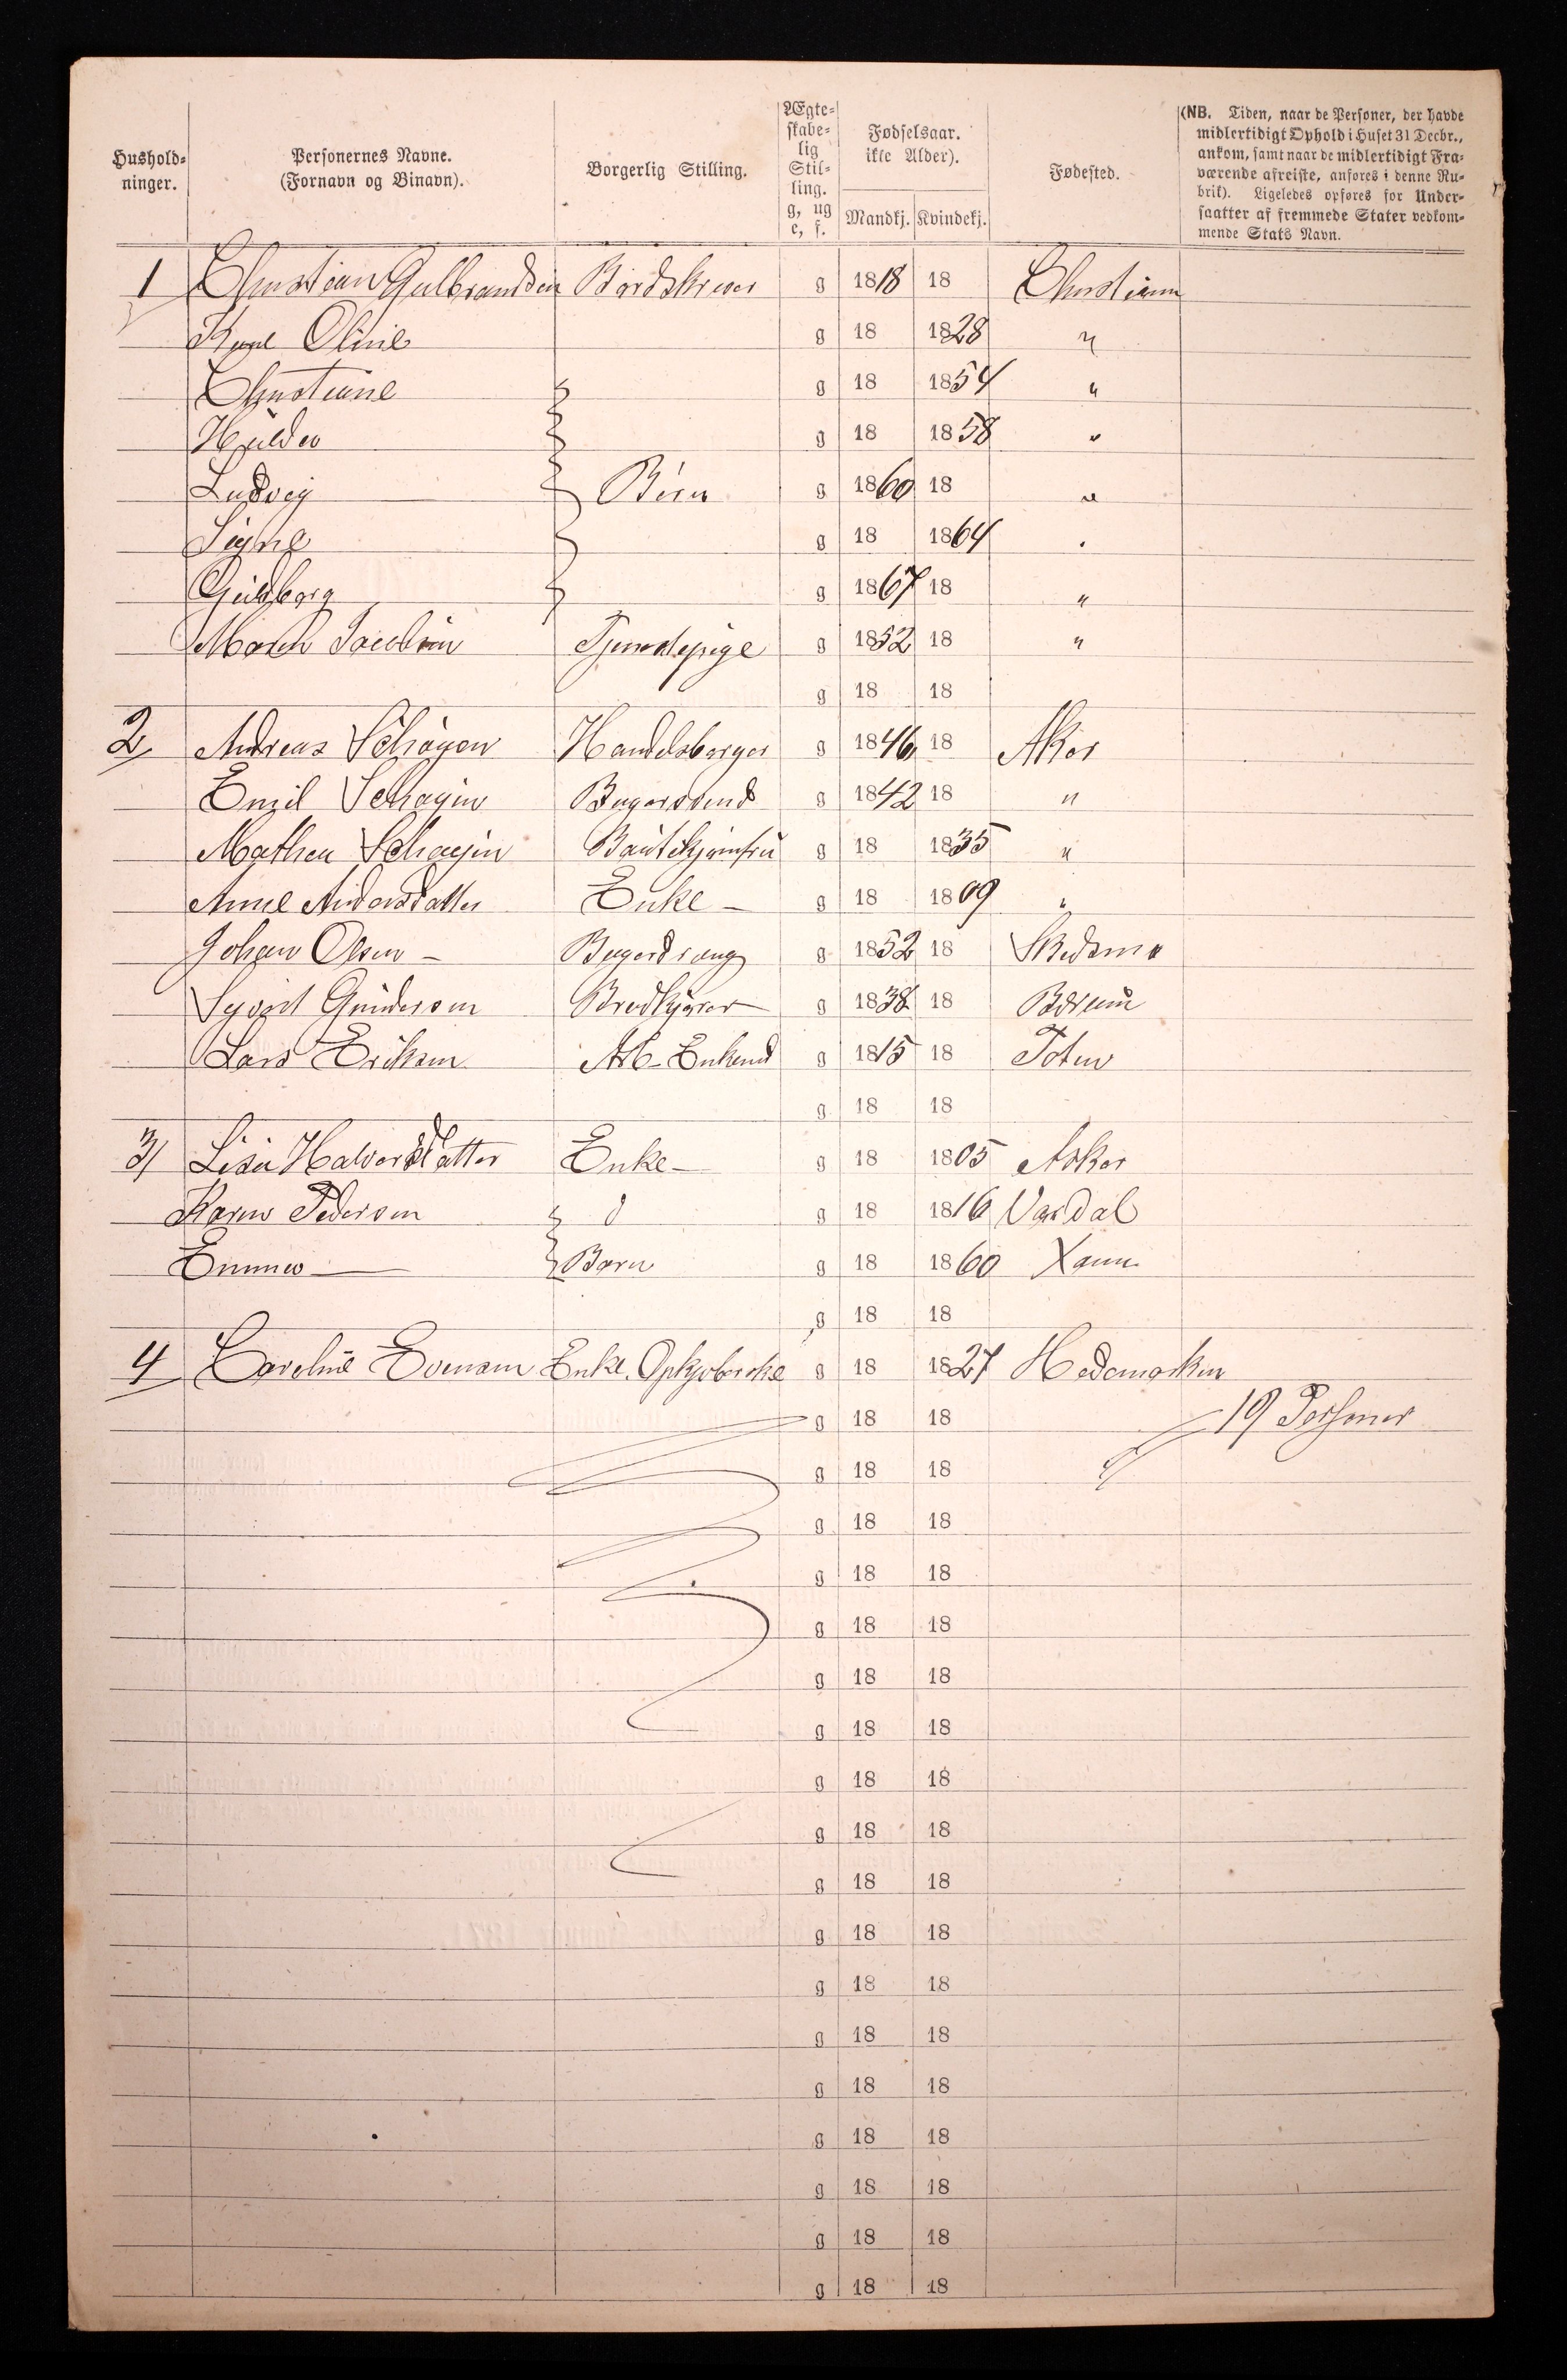 Hushold-
ninger.
Personernes Navne.
(Fornavn og Binavn).
Borgerlig Stilling.
Ægte-
skabe-
lig
Stil-
ling.
g, ug
e, f.
Fødselsaar.
ikke Alder).
Mandkj. Kvindekj.
Fødested.
(NB. Tiden, naar de Personer, der havde
midlertidigt Ophold i Huset 31 Decbr.,
ankom, samt naar de midlertidigt Fra-
værende afreiste, anføres i denne Ru-
brik). Ligeledes opføres for Under-
saatter af fremmede Stater vedkom-
mende Stats Navn.
1 Christian Gulbrandsen g 1818 18
Oline g 18 1828 "
Christiane g 18 1854 "
Hulda g 18 1858 "
Ludvig Børn g 1860 18 "
Signe g 18 1864 "
g 1867 18 "
Tjenestepige g 1852 18 "
g 18 18
2 Andreas Schøyen Handelsborger g 1846 18 Aker
Emil Schøyen Bagersvend g 1842 18 "
Mathea Schøyen g 18 1835 "
Anne Andersdatter Enke - g 18 1809 "
Johan Olsen - g 1852 18 Skedsmo
Gundersen Brødkjører g 1838 18 Bærum
Lars Eriksen g 1815 18 Toten
g 18 18
3 Lisa Halvorsdatter Enke - g 18 1805 Asker
Karen Pedersen d g 18 1816 Vardal
Emma - Barn g 18 1860 Xania
g 18 18
4 Caroline Evensen Enke. g 18 1827 Hedemarken
g 18 18 19 Personer
g 18 18
g 18 18
g 18 18
g 18 18
g 18 18
g 18 18
g 18 18
g 18 18
g 18 18
g 18 18
g 18 18
g 18 18
g 18 18
g 18 18
g 18 18
g 18 18
g 18 18